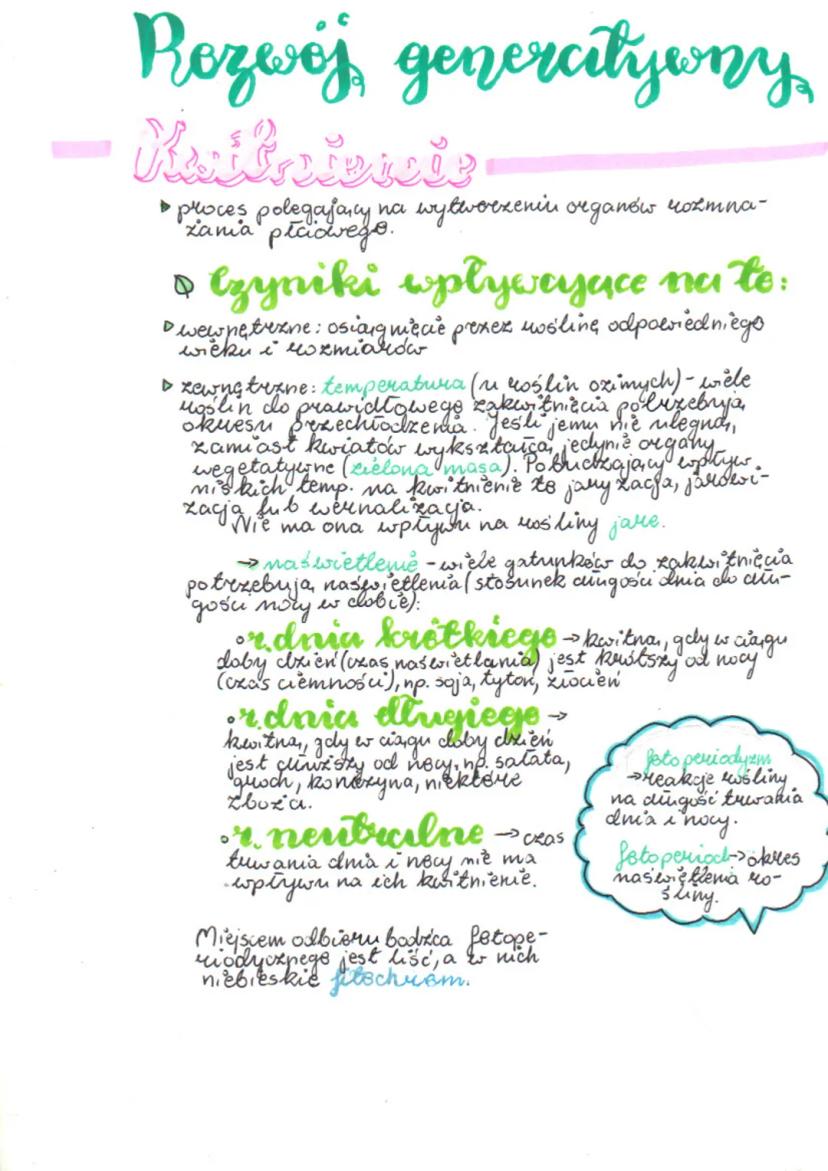 Rozwój generatywny
Kwitnienie
proces polegający na wytworzeniu organów rozmna-
żania płciowego.
Czyniki wpływające na to:
wewnętrzne: osiągnięcie przez roślinę odpowiedniego
wieku i rozmiarów
zewnętrzne: temperatura (u roślin ozimych) - wiele
roślin do prawidłowego zakwitnięcia potrzebują
okresu przechłodzenia. Jeśli jemu nie ulegną,
zamiast kwiatów wykształcą jedynie organy
wegetatywne (zielona masa). Pobudzający wpływ
niskich temp. na kwitnienie to jaryzacja, jarowi-
zacja lub wernalizacja.
Nie ma ona wpływu na rośliny jare.
→ naświetlenie - wiele gatunków do zakwitnięcia
potrzebują naświetlenia (stosunek długości dnia do dłu-
gości nocy w dobie):
r. dnia krótkiego → kwitną, gdy w ciągu
doby dzień (czas naświetlania) jest krótszy od nocy
(czas ciemności), np. soja, tytoń, złocień
r. dnia długiego →
kwitną, gdy w ciągu doby dzień
jest dłuższy od nocy, np. sałata,
groch, koniczyna, niektóre
zboża.
r. neutralne → czas
trwania dnia i nocy nie ma
wpływu na ich kwitnienie.
fotoperiodyzm
→ reakcje rośliny
na długość trwania
dnia i nocy.
fotoperiod → okres
naświetlenia ro-
śliny.
Miejscem odbioru bodźca fotope-
riodycznego jest liść, a w nich
niebieskie fitochrom.